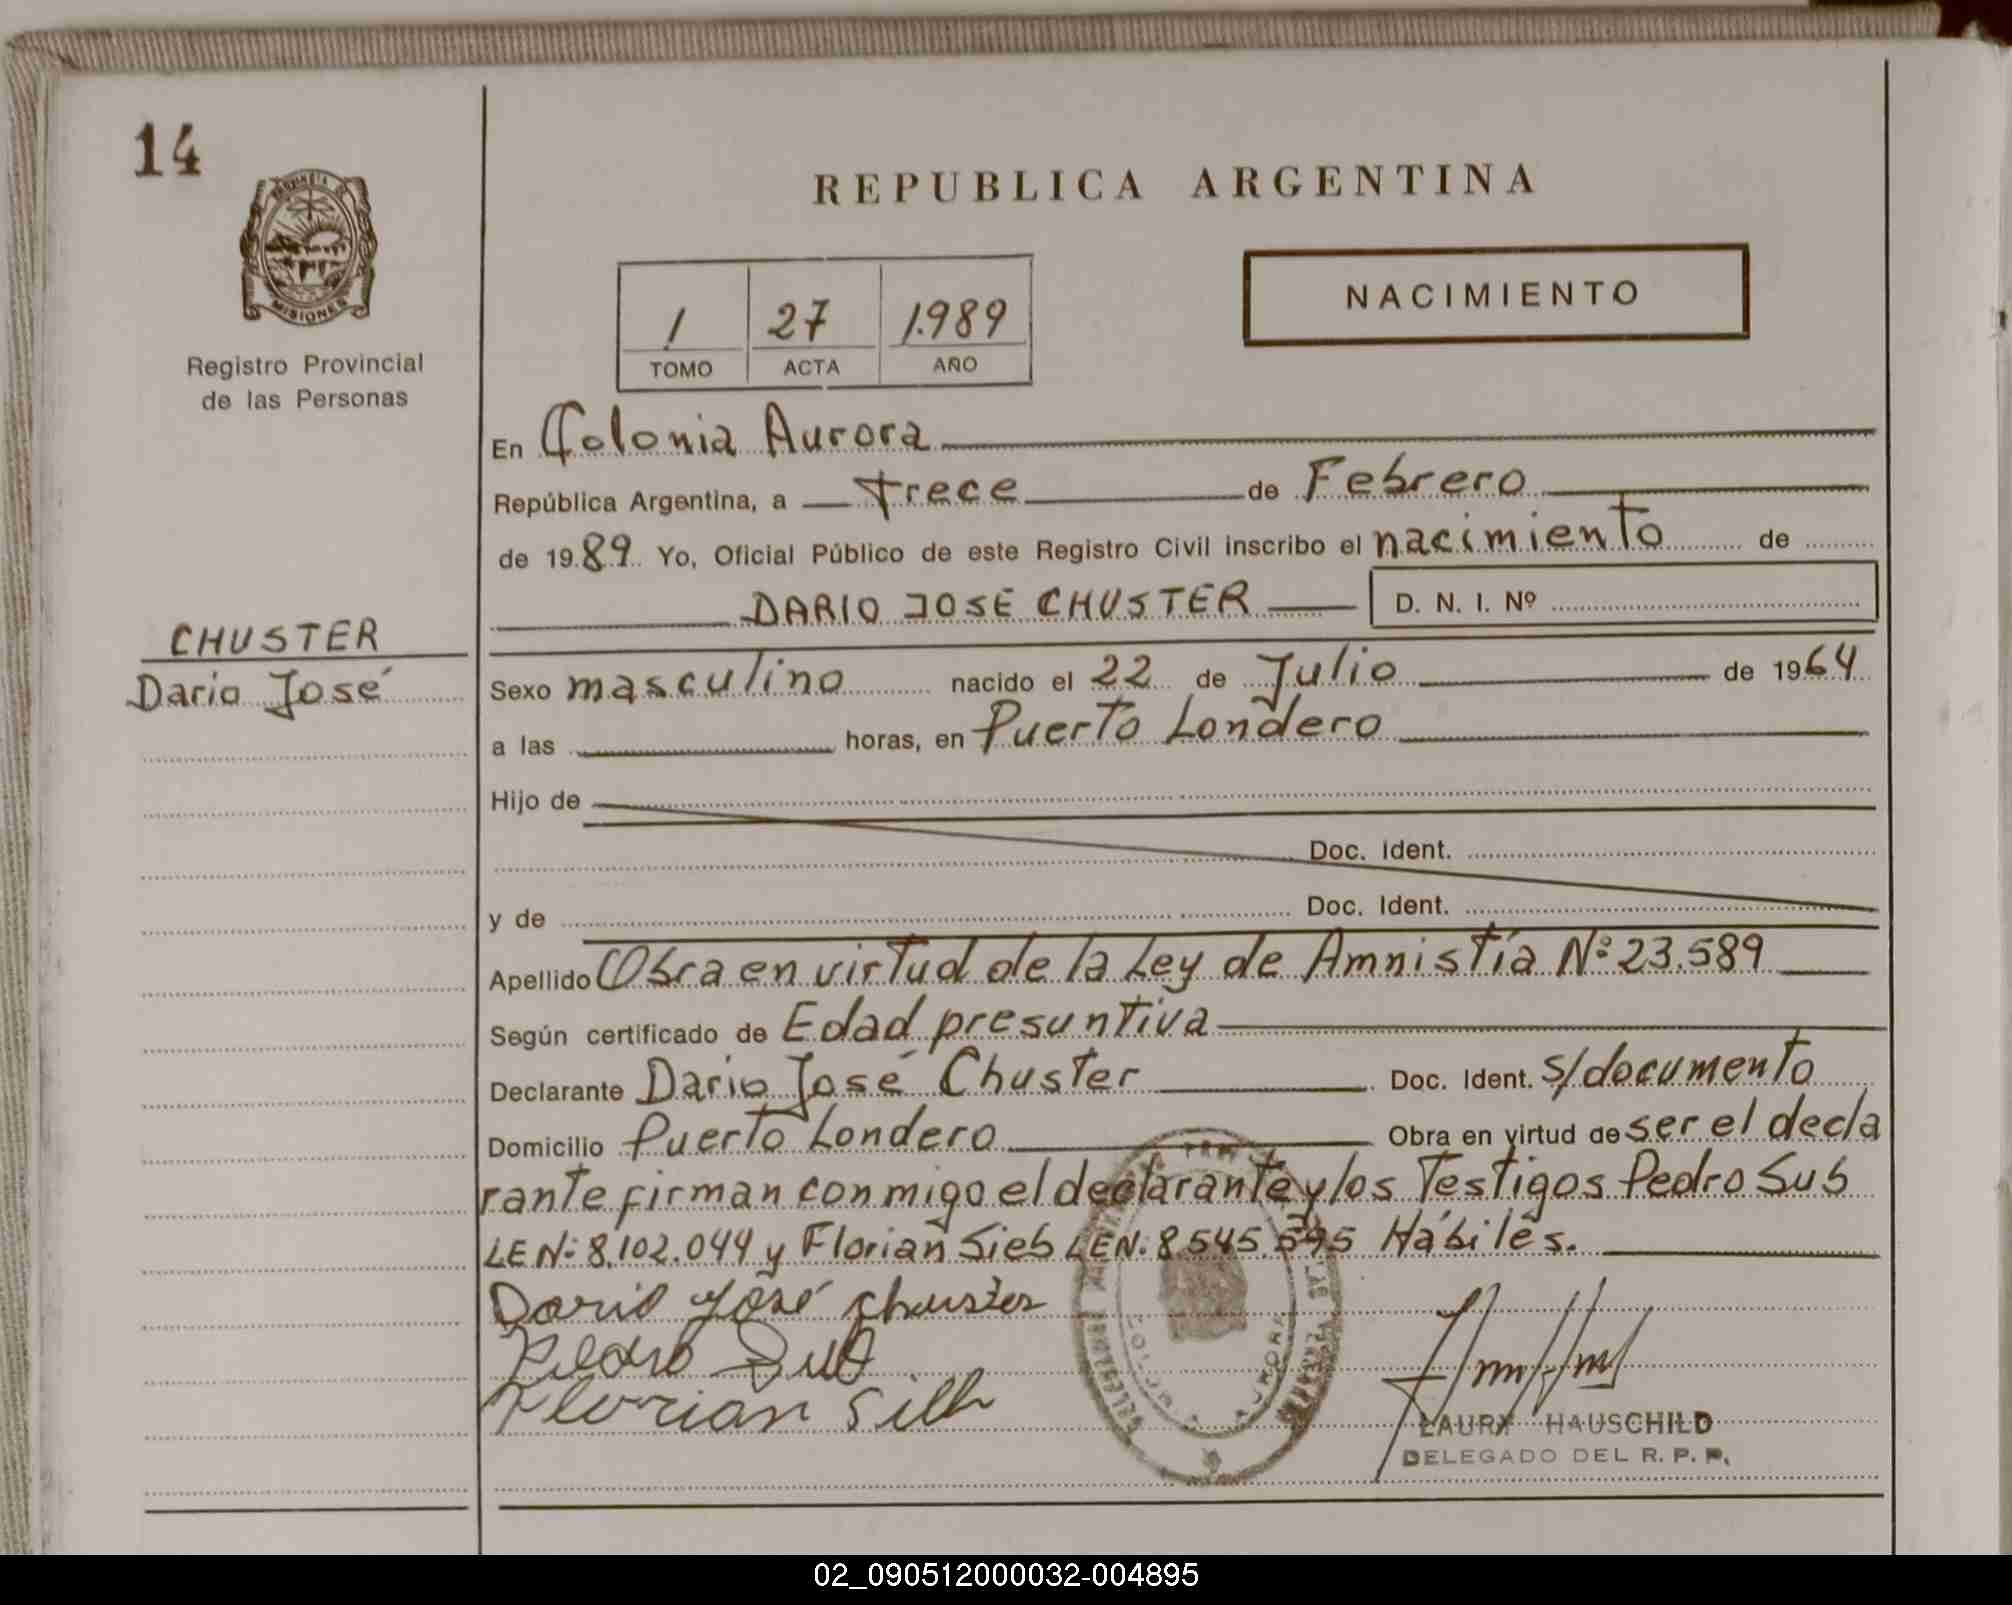 14
PROVINCIA DE
MISIONES
Registro Provincial
de las Personas
CHUSTER
Dario José
REPUBLICA ARGENTINA
1 27 1.989
TOMO ACTA AÑO
NACIMIENTO
En Colonia Aurora
República Argentina, a trece de Febrero
de 1989 Yo, Oficial Público de este Registro Civil inscribo el nacimiento de
DARIO JOSE CHUSTER D. N. I. Nº
Sexo masculino nacido el 22 de Julio de 1964
a las horas, en Puerto Londero
Hijo de
Doc. Ident.
y de Doc. Ident.
Apellido Obra en virtud de la Ley de Amnistía Nº 23.589
Según certificado de Edad presuntiva
Declarante Dario José Chuster Doc. Ident. S/documento
Domicilio Puerto Londero Obra en virtud de ser el decla
rante firman conmigo el declarante y los Testigos Pedro Sub
LE Nº 8.102.044 y Florian Sieb LE Nº 8.545.595 Hábiles.
Dario José Chuster
Pedro Sub
Florian Sieb
COLONIA AURORA
LAURY HAUSCHILD
DELEGADO DEL R. P. P.
02_090512000032-004895